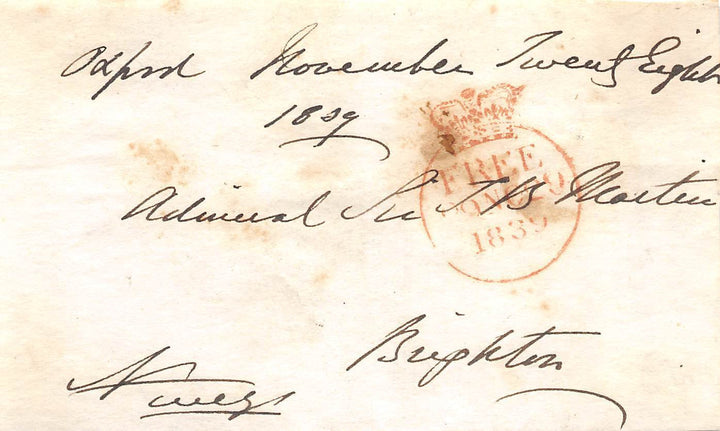 Oxford November Twenty Eight
1839
Admiral Sir T B Martin
FREE
1839
Brighton